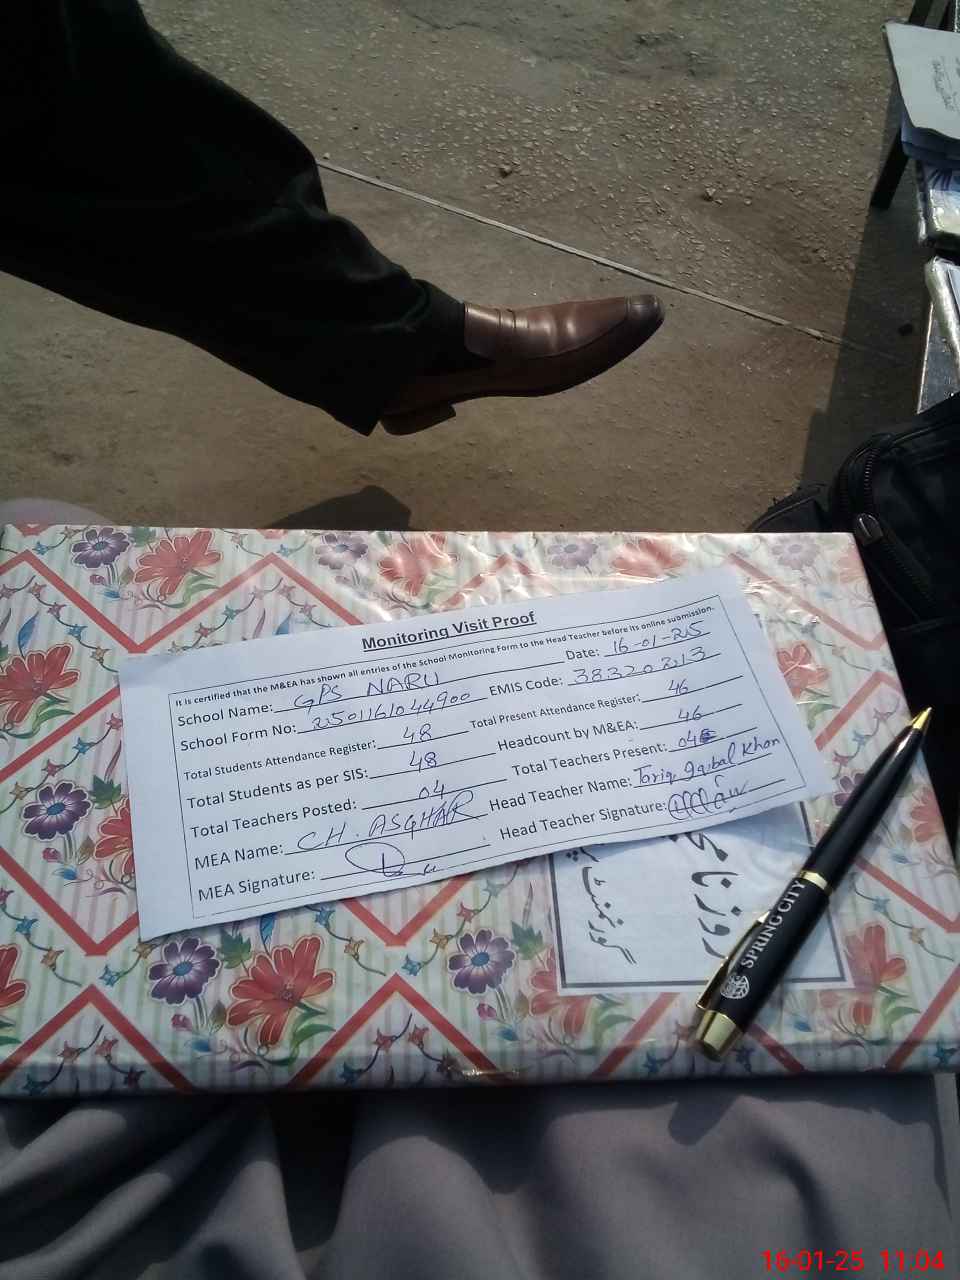 Monitoring Visit Proof
It is certified that the M&EA has shown all entries of the School Monitoring Form to the Head Teacher before its online submission.
School Name: GPS NARU Date: 16-01-2025
School Form No: 22501161044900 EMIS Code: 38320213
Total Students Attendance Register: 48 Total Present Attendance Register: 46
Total Students as per SIS: 48 Headcount by M&EA: 46
Total Teachers Posted: 04 Total Teachers Present: 04
MEA Name: CH. ASGHAR Head Teacher Name: Tariq Iqbal Khan
MEA Signature: Head Teacher Signature:
گورنمنٹ
SPRING CITY
16-01-25 11:04